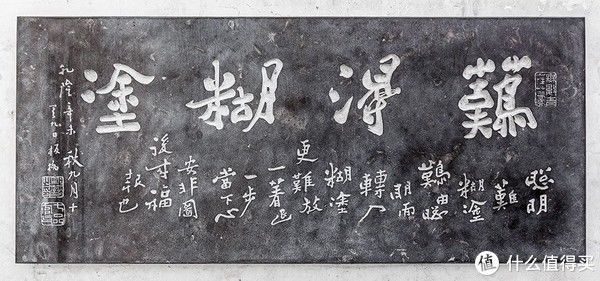 難得糊塗
聰明
難
糊塗
難由聰
明而
轉入
糊塗
更難放
一著退
一步
當下心
安非圖
後來福
報也
乾隆辛未秋九月十
有九日板橋
值 什么值得买